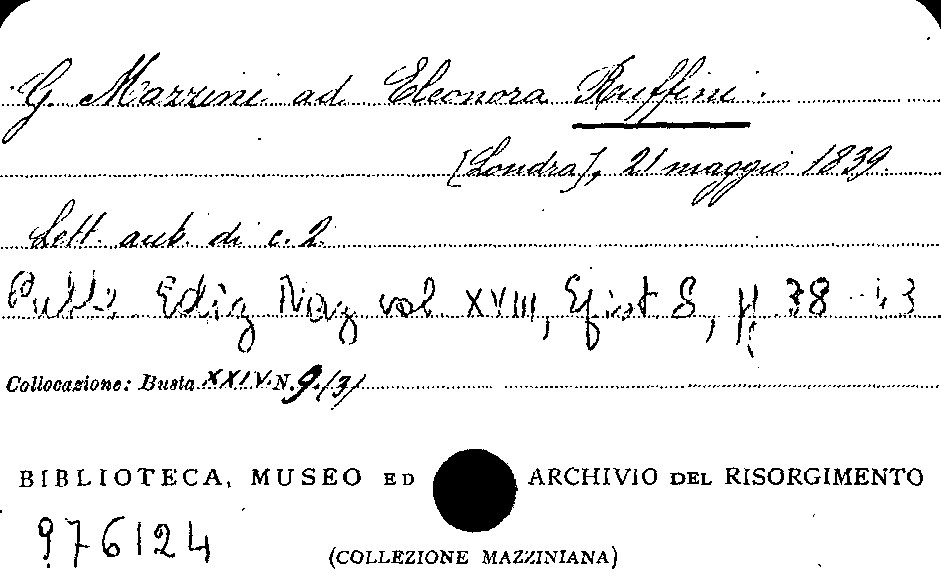 G. Mazzini ad Eleonora Ruffini.
[Londra], 21 maggio 1839.
Lett. aut. di c. 2
Pubbl. Ediz Naz vol XVIII, Epist 8, pp. 38-43
Collocazione: Busta XXIV N. 9/3/
BIBLIOTECA, MUSEO ED ARCHIVIO DEL RISORGIMENTO
976124
(COLLEZIONE MAZZINIANA)